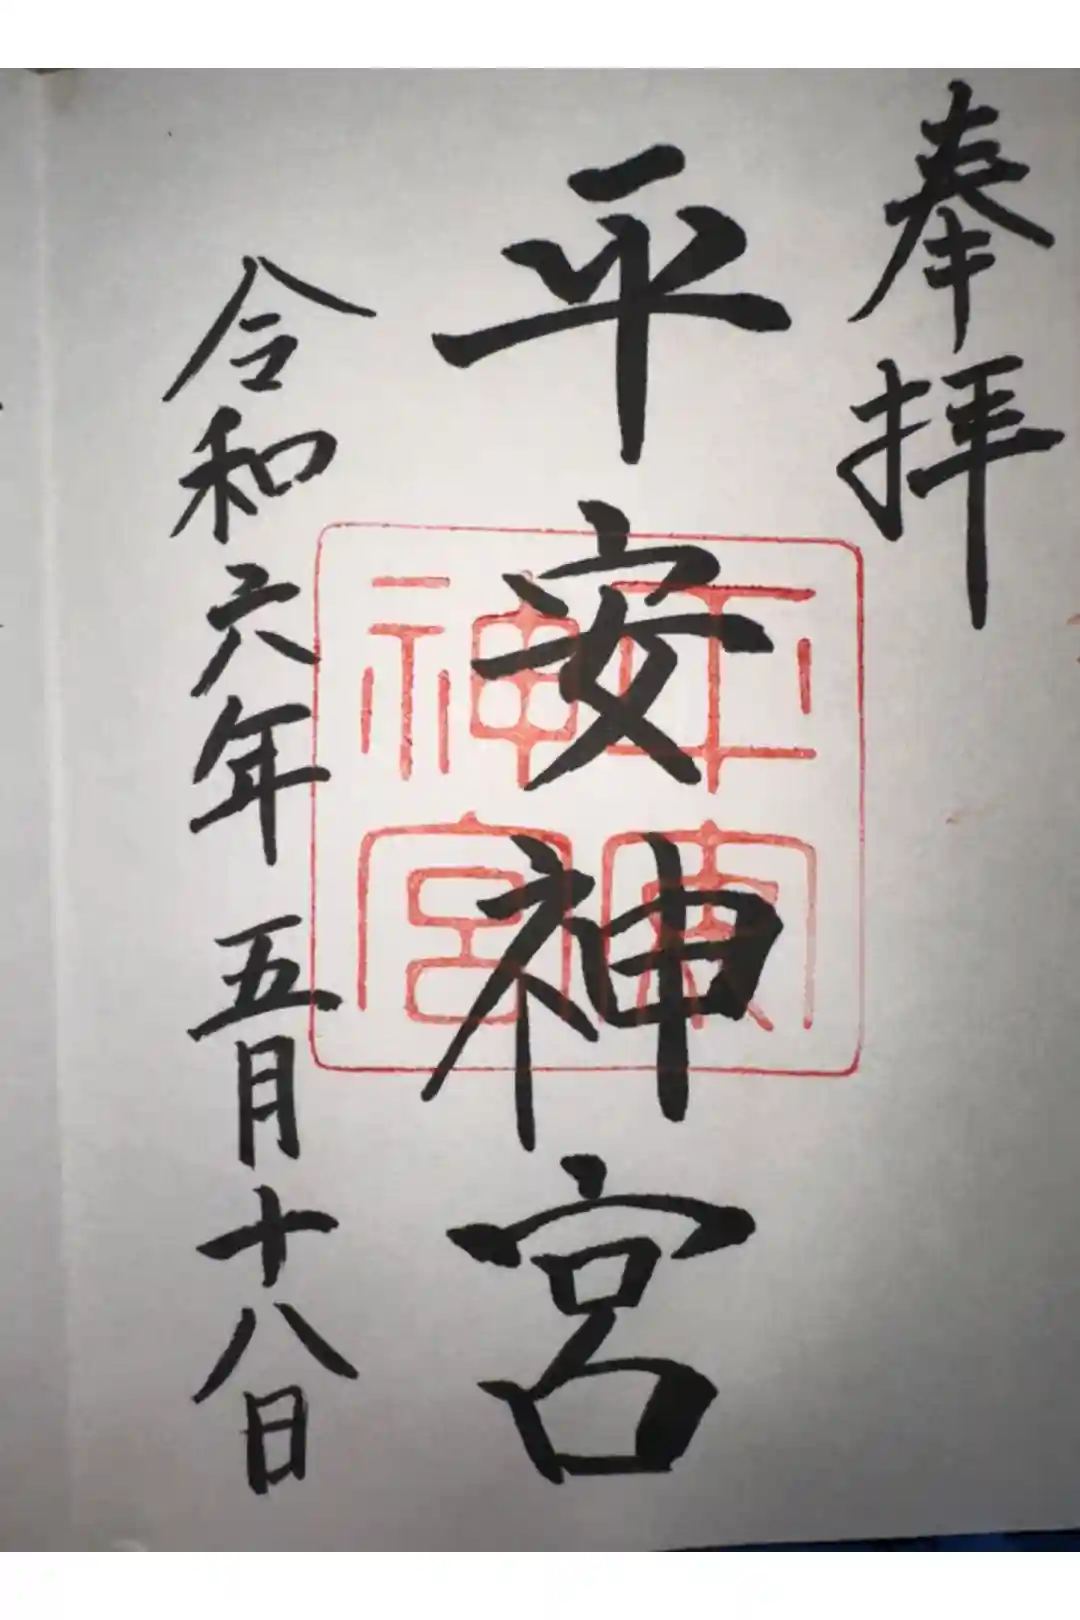 奉拝
平安神宮
平安神宮
令和六年 五月十八日